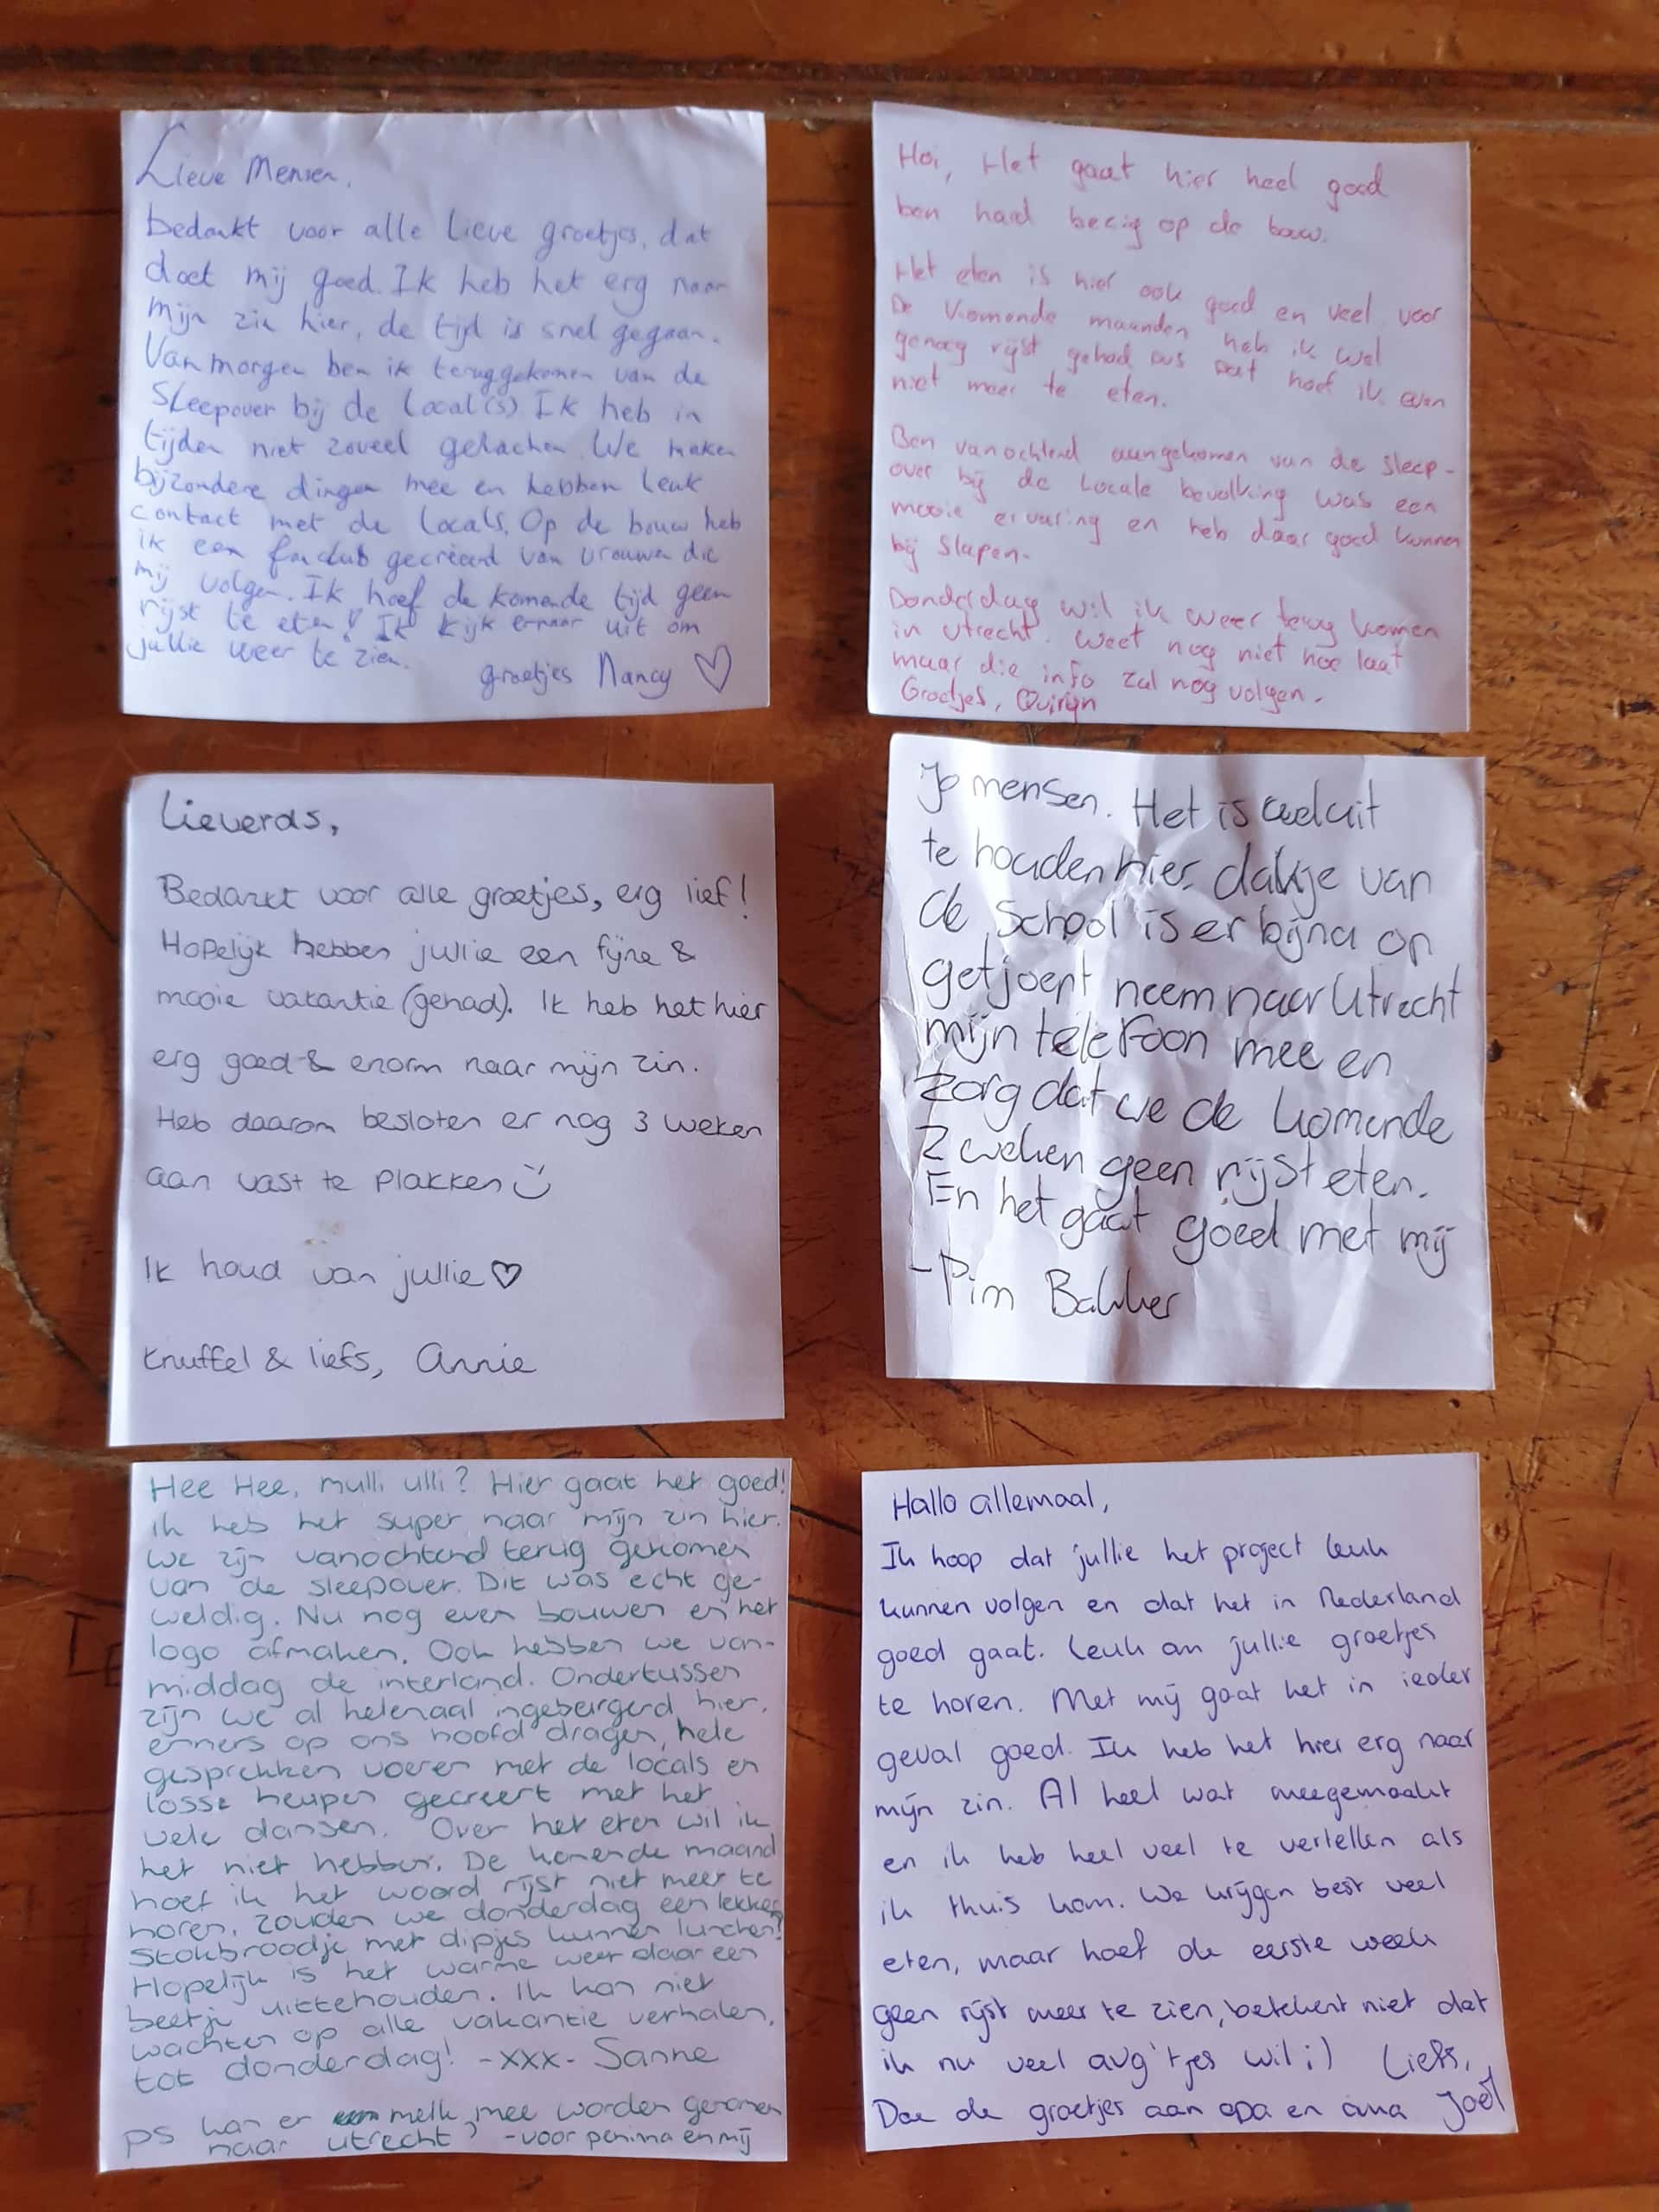 Lieve Mensen,
bedankt voor alle lieve groetjes, dat
doet mij goed. Ik heb het erg naar
mijn zin hier, de tijd is snel gegaan.
Van morgen ben ik teruggekomen van de
Sleepover bij de local(s) Ik heb in
tijden niet zoveel gelachen. We maken
bijzondere dingen mee en hebben leuk
contact met de locals. Op de bouw heb
ik een fanclub gecreëerd van vrouwen die
mij volgen. Ik hoef de komende tijd geen
rijst te eten! Ik kijk ernaar uit om
jullie weer te zien.
groetjes Nancy ♡
Hoi, Het gaat hier heel goed
ben hard bezig op de bouw.
Het eten is hier ook goed en veel voor
De komende maanden heb ik wel
genoeg rijst gehad dus dat hoef ik even
niet meer te eten.
Ben vanochtend aangekomen van de sleep-
over bij de locale bevolking was een
mooie ervaring en heb daar goed kunnen
bij slapen.
Donderdag wil ik weer terug komen
in utrecht. weet nog niet hoe laat
maar die info zal nog volgen.
Groetjes, Quirijn
Lieverds,
Bedankt voor alle groetjes, erg lief!
Hopelijk hebben jullie een fijne &
mooie vakantie (gehad). Ik heb het hier
erg goed & enorm naar mijn zin.
Heb daarom besloten er nog 3 weken
aan vast te plakken
Ik houd van jullie ♡
Knuffel & liefs, Annie
Jo mensen. Het is wel uit
te houden hier. dakje van
de School is er bijna op
getjoept neem naar Utrecht
mijn telefoon mee en
zorg dat we de komende
2 weken geen rijst eten.
En het gaat goed met mij
-Pim Bakker
Hee Hee, mulli ulli? Hier gaat het goed!
ik heb het super naar mijn zin hier.
we zijn vanochtend terug gekomen
van de sleepover. Dit was echt ge-
weldig. Nu nog even bouwen en het
logo afmaken. Ook hebben we van-
middag de interland. Ondertussen
zijn we al helemaal ingeburgerd hier.
emmers op ons hoofd dragen, hele
gesprekken voeren met de locals en
losse heupen gecreert met het
vele dansen. Over het eten wil ik
het niet hebben. De komende maand
hoef ik het woord rijst niet meer te
horen. Zouden we donderdag een lekker
Stokbroodje met dipjes kunnen lunchen?
Hopelijk is het warme weer daar een
beetje uittehouden. Ik kan niet
wachten op alle vakantie verhalen.
tot donderdag! -xxx- Sanne
ps kan er melk mee worden genomen
naar utrecht? -voor penina en mij
Hallo allemaal,
Ik hoop dat jullie het project leuk
kunnen volgen en dat het in Nederland
goed gaat. Leuk om jullie groetjes
te horen. Met mij gaat het in ieder
geval goed. Ik heb het hier erg naar
mijn zin. Al heel wat meegemaakt
en ik heb heel veel te vertellen als
ik thuis kom. We krijgen best veel
eten, maar hoef de eerste week
geen rijst meer te zien, betekent niet dat
ik nu veel avg'tjes wil ;) Liefs,
Doe de groetjes aan opa en oma Joël